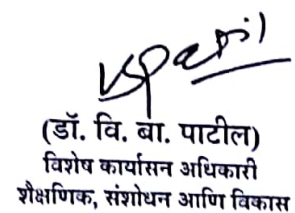 vspatil
(डॉ. वि. बा. पाटील)
विशेष कार्यासन अधिकारी
शैक्षणिक, संशोधन आणि विकास